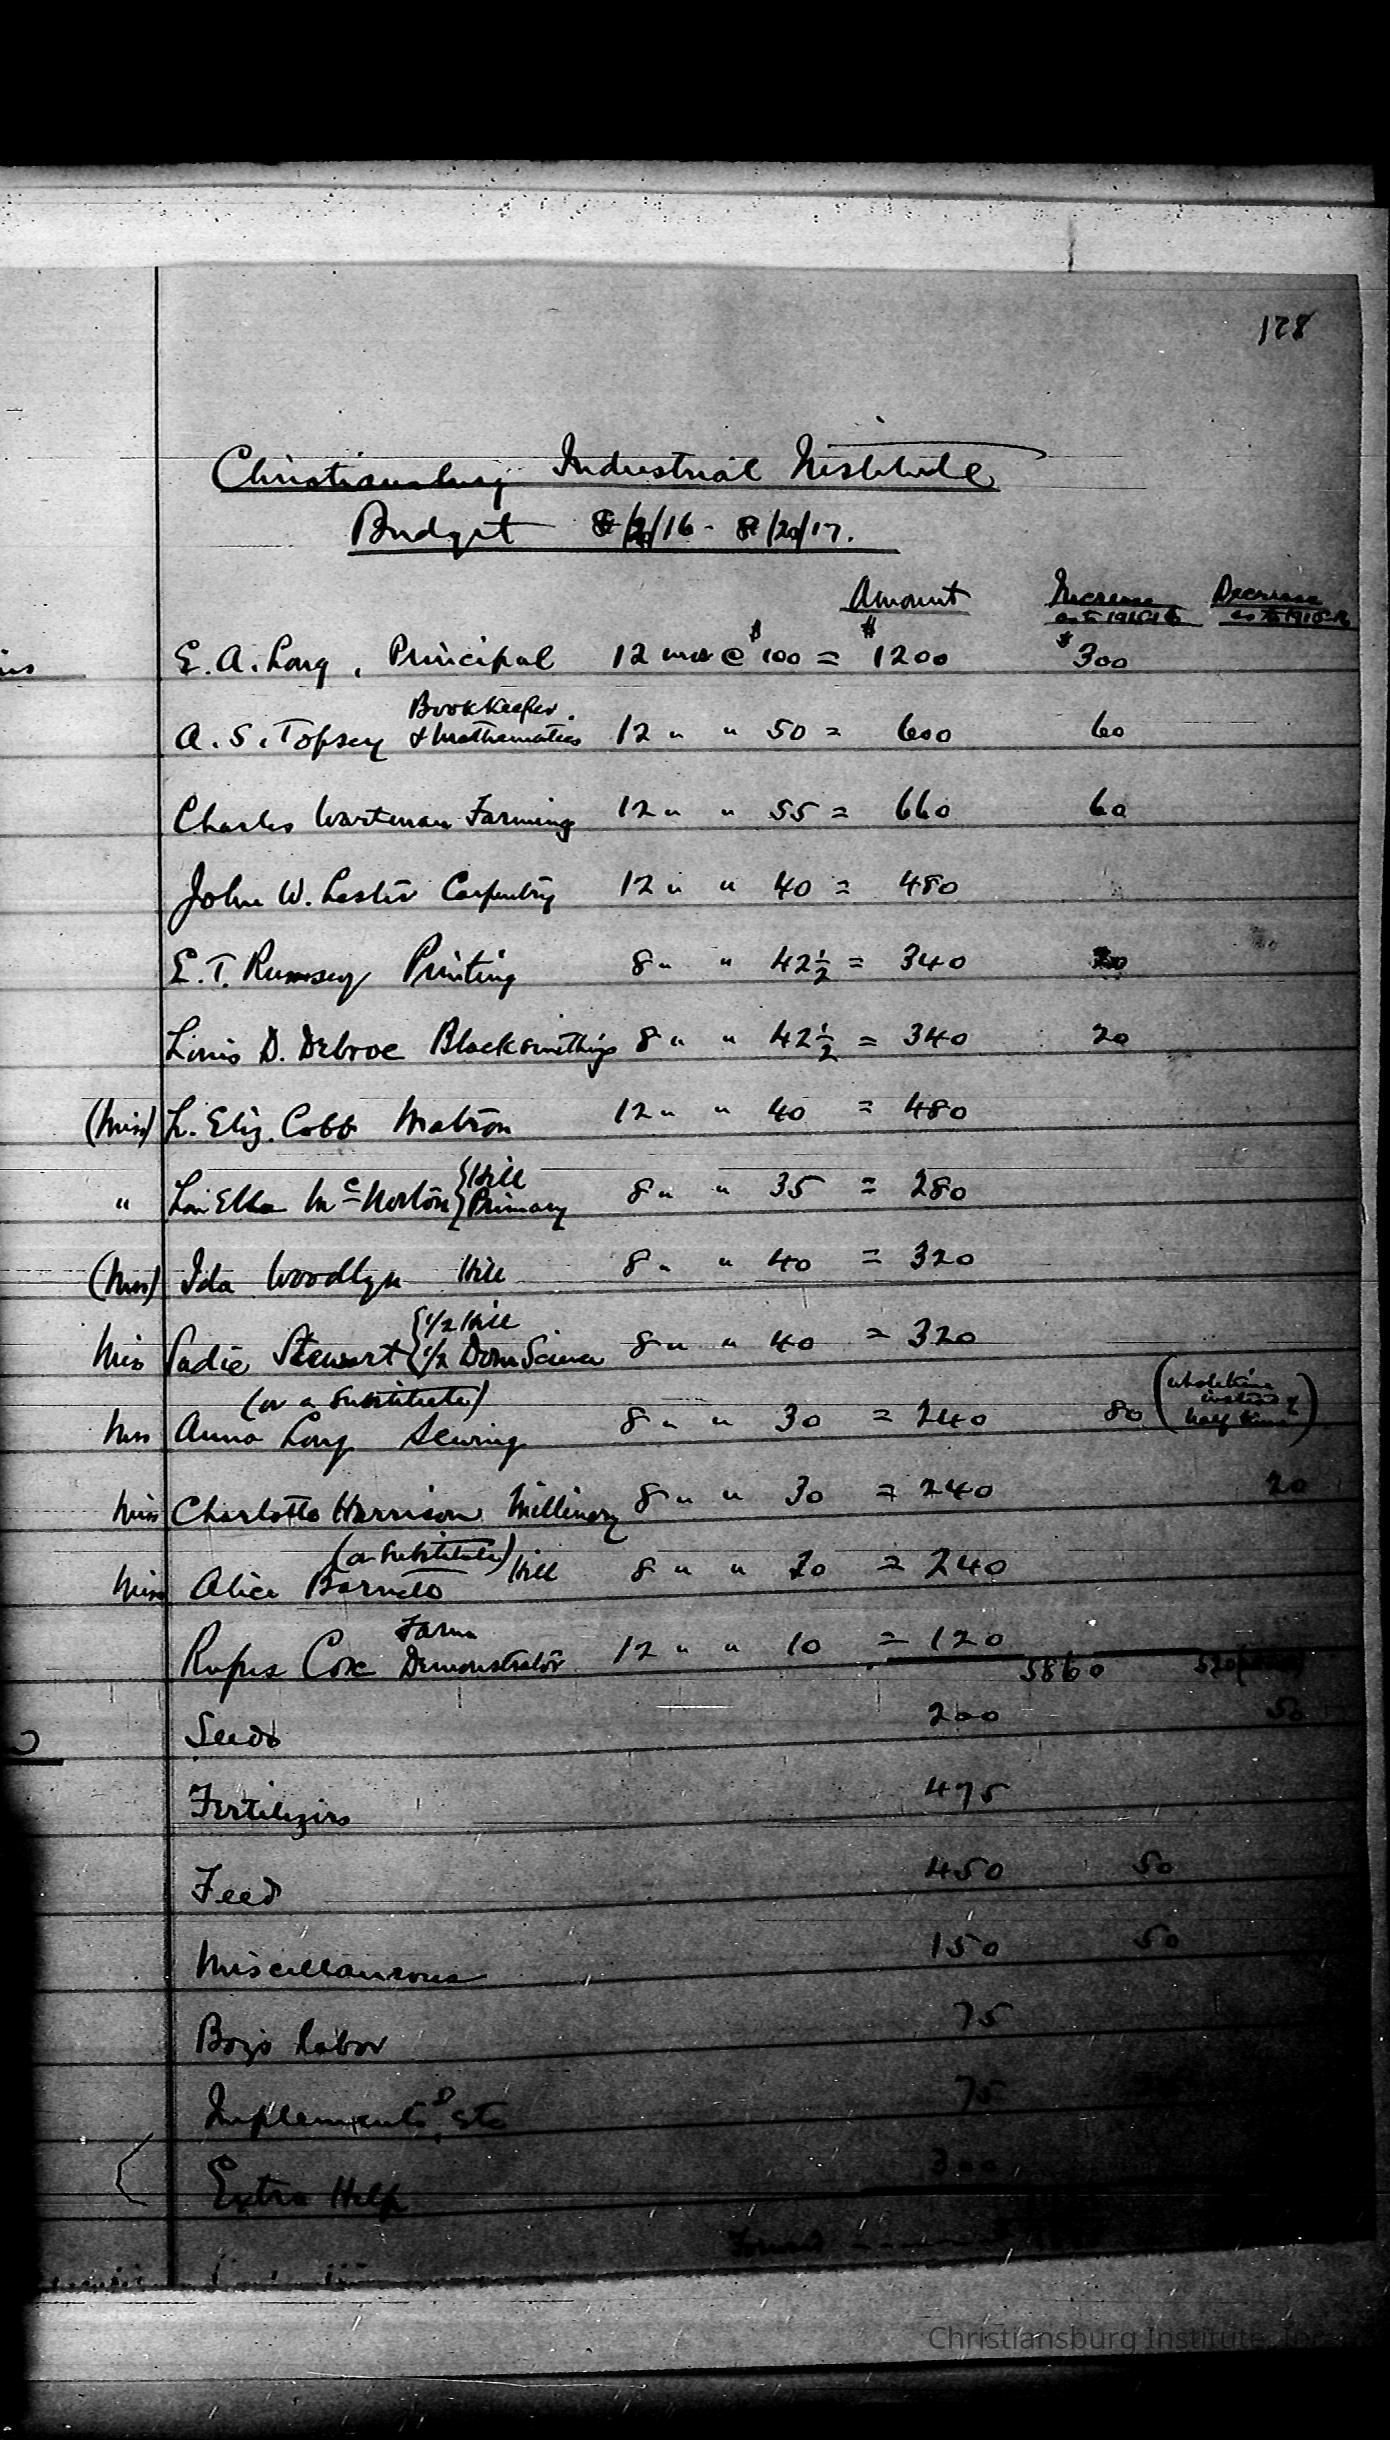 128
Christiansburg Industrial Institute
Budget 8/20/16 - 8/20/17.
Amount Increase Decrease
as to 1915-16 as to 1915-16
E. A. Long, Principal 12 mos @ $100 = $1200 $300
Bookkeeper
A. S. Topsey & Mathematics 12 " " 50 = 600 60
Charles Wartman Farming 12 " " 55 = 660 60
John W. Lester Carpentry 12 " " 40 = 480
E. T. Rumsey Printing 8 " " 42½ = 340 20
Louis D. Debroe Blacksmithing 8 " " 42½ = 340 20
(Miss) L. Eliz. Cobb Matron 12 " " 40 = 480
" Lou Ella Mc Norton { Hill Primary 8 " " 35 = 280
(Mrs) Ida Woodlyn Hill 8 " " 40 = 320
Miss Sadie Stewart { 1/2 Hill 1/2 Dom Science 8 " " 40 = 320
(or a substitute)
Miss Anna Long Sewing 8 " " 30 = 240 80 (whole time instead of half time)
Miss Charlotte Harrison Millinery 8 " " 30 = 240 20
(a substitute)
Miss Alice Hill 8 " " 30 = 240
Farm
Rufus Cox Demonstrator 12 " " 10 = 120
5860
Seeds 200 50
Fertilizers 475
Feed 450 50
Miscellaneous 150 50
Boys labor 75
Implements, etc 75
Extra Help 300
Forward
Christiansburg Institute, Inc.